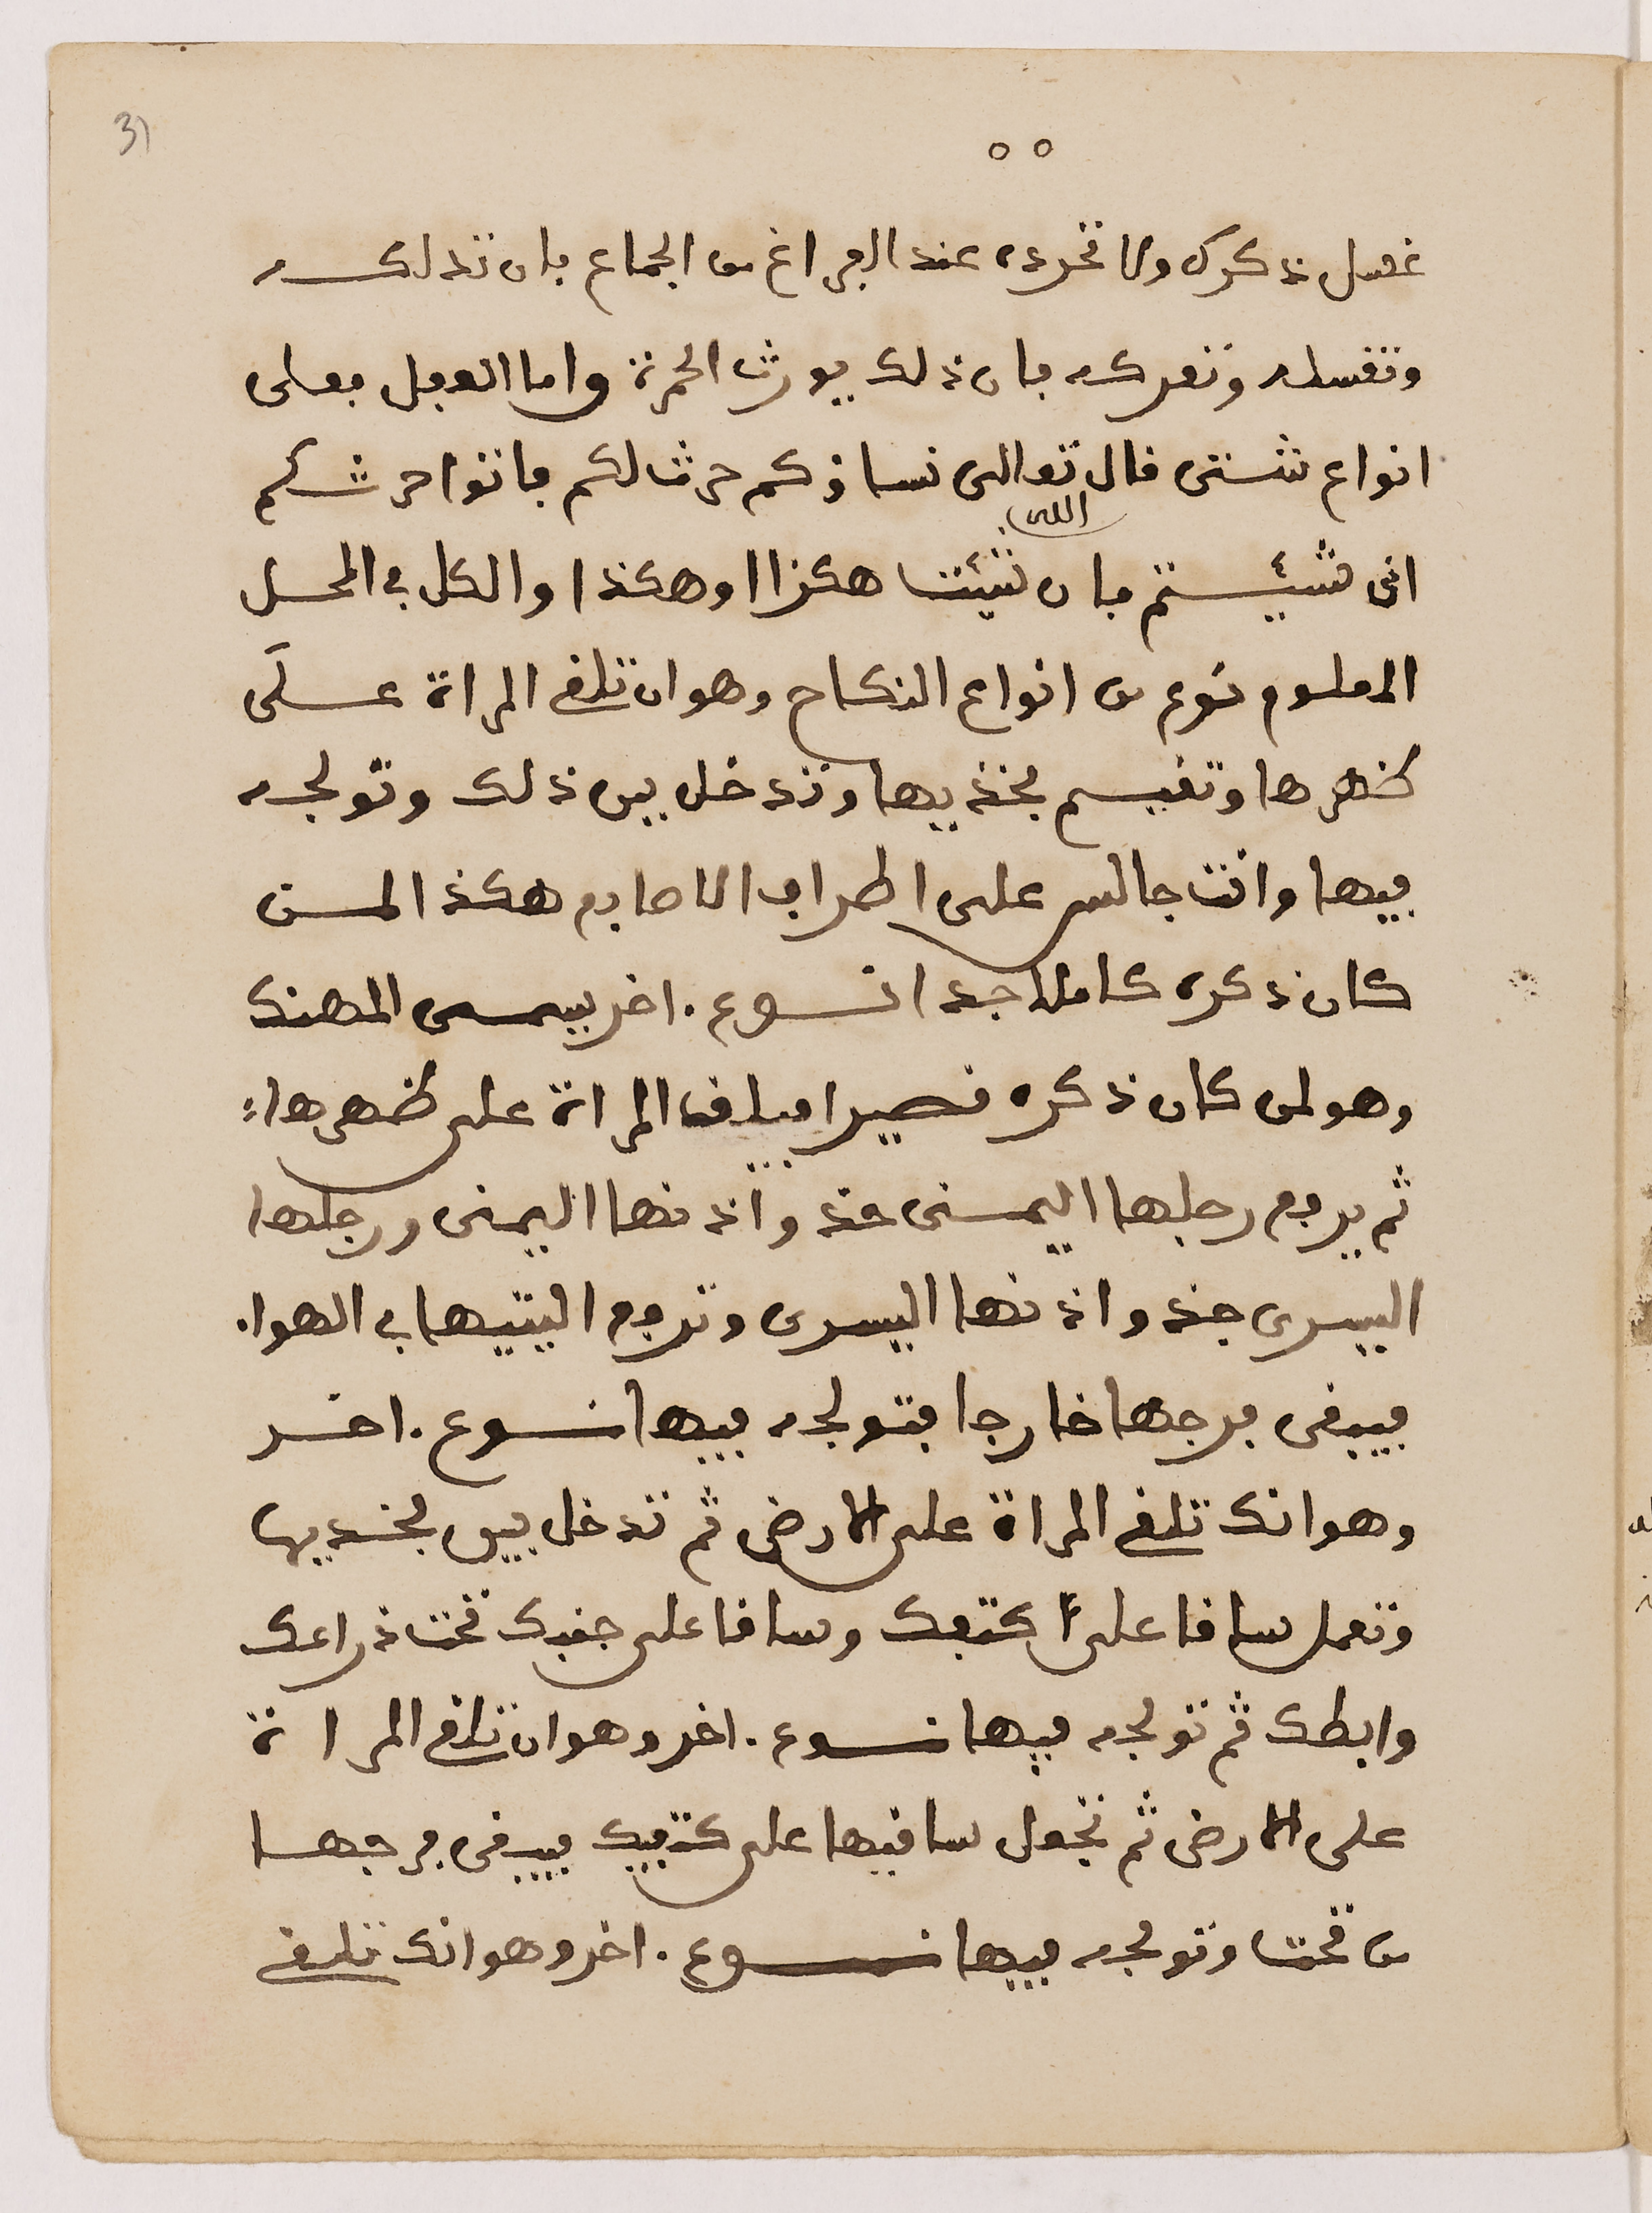 31
٥٥
غسل ذكرك ولا تحرده عند الفراغ من الجماع بان تدلكه
وتغسله وتعركه فان ذلك يورث الحمرة واما الفعل فعلى
انواع شتى قال تعالى نساؤكم حرث لكم فاتوا حرثكم
الله
انى شئتم فان شئت هكذا او هكذا والكل في المحل
المعلوم نوع من انواع النكاح وهو ان تلقي المراة على
ظهرها وتقيم فخذيها وتدخل بين ذلك وتولجه
فيها وانت جالس على اطراف الاصابع هكذ المن
كان ذكره كاملا جدا نوع اخر يسمى المهند
وهو لمن كان ذكره قصيرا فيلق المراة على ظهرها
ثم يرفع رجلها اليمنى حذو اذنها اليمنى ورجلها
اليسرى حذو اذنها اليسرى وترفع اليتيها في الهوا
فيبقى فرجها خارجا فتولجه فيها نوع اخر
وهو انك تلقي المراة على الارض ثم تدخل بين فخديها
وتعمل ساقا على كتفك وساقا على جنبك تحت ذراعك
وابطك ثم تولجه فيها نوع اخر وهو ان تلقي المراة
على الارض ثم تجعل ساقيها على كتفيك فيبقى فرجها
من تحت وتولجه فيها نوع اخر وهو انك تلقي